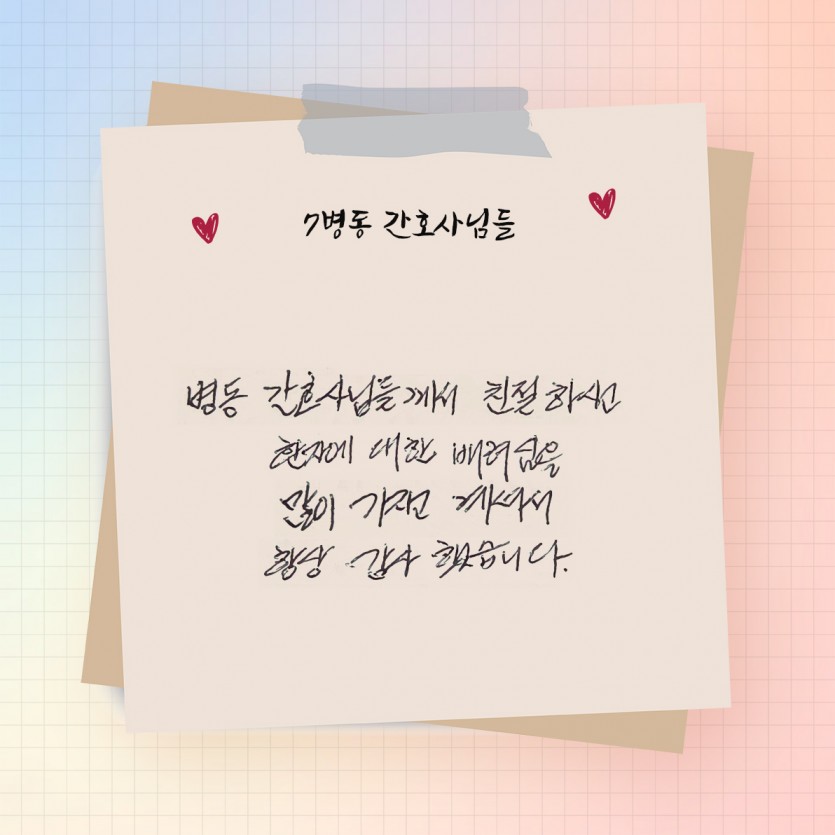 7병동 간호사님들
병동 간호사님들께서 친절하시고
환자에 대한 배려심을
많이 가지고 계셔서
항상 감사했습니다.